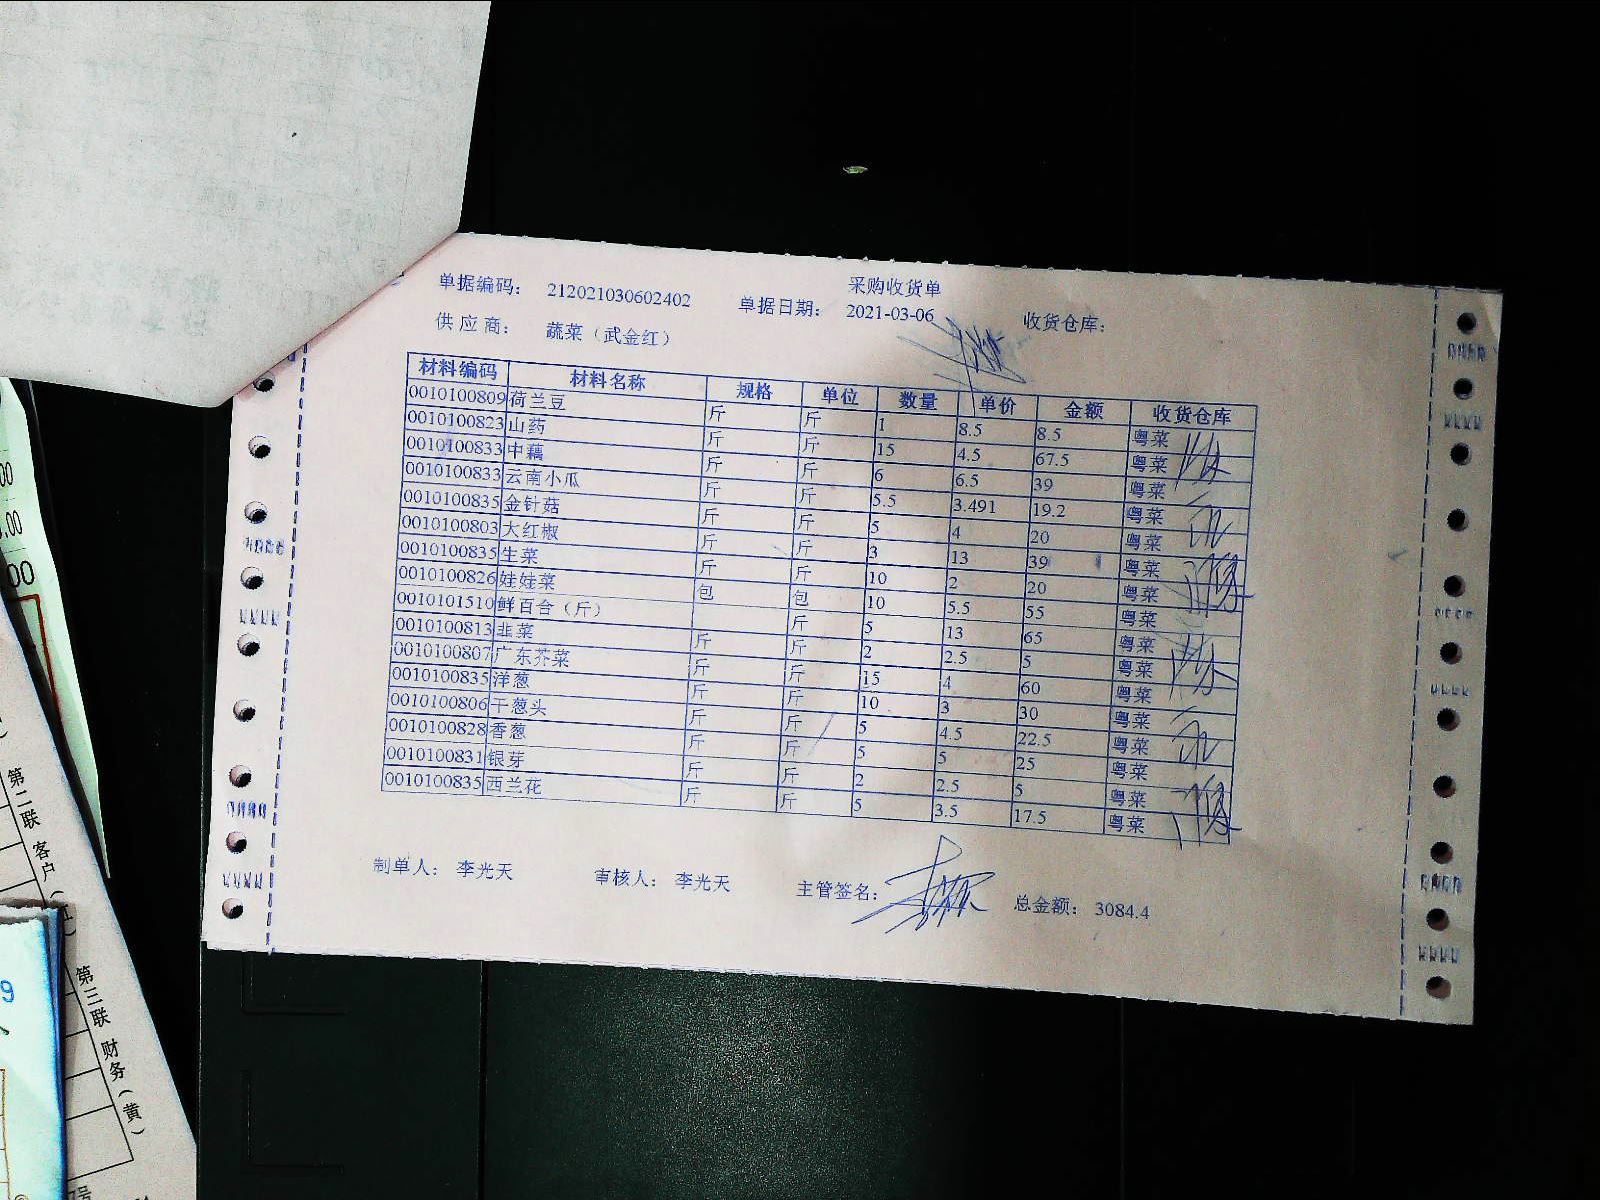 采购收货单
单据编码： 212021030602402 单据日期： 2021-03-06 收货仓库：
供 应 商： 蔬菜（武金红）
材料编码 材料名称 规格 单位 数量 单价 金额 收货仓库
0010100809 荷兰豆 斤 斤 1 8.5 8.5 粤菜
0010100823 山药 斤 斤 15 4.5 67.5 粤菜
0010100833 中藕 斤 斤 6 6.5 39 粤菜
0010100833 云南小瓜 斤 斤 5.5 3.491 19.2 粤菜
0010100835 金针菇 斤 斤 5 4 20 粤菜
0010100803 大红椒 斤 斤 3 13 39 粤菜
0010100835 生菜 斤 斤 10 2 20 粤菜
0010100826 娃娃菜 包 包 10 5.5 55 粤菜
0010101510 鲜百合（斤） 斤 5 13 65 粤菜
0010100813 韭菜 斤 斤 2 2.5 5 粤菜
0010100807 广东芥菜 斤 斤 15 4 60 粤菜
0010100835 洋葱 斤 斤 10 3 30 粤菜
0010100806 干葱头 斤 斤 5 4.5 22.5 粤菜
0010100828 香葱 斤 斤 5 5 25 粤菜
0010100831 银芽 斤 斤 2 2.5 5 粤菜
0010100835 西兰花 斤 斤 5 3.5 17.5 粤菜
制单人： 李光天 审核人： 李光天 主管签名： 总金额： 3084.4
00
.00
00
第二联 客户（红）
第三联 财务（黄）
9
号